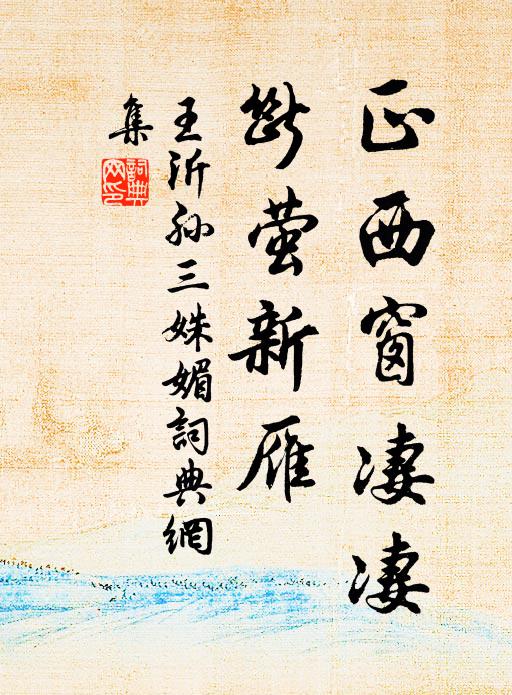 正西窗凄凄
断萤新雁
王沂孙三姝媚詞典網
集
詞典網印